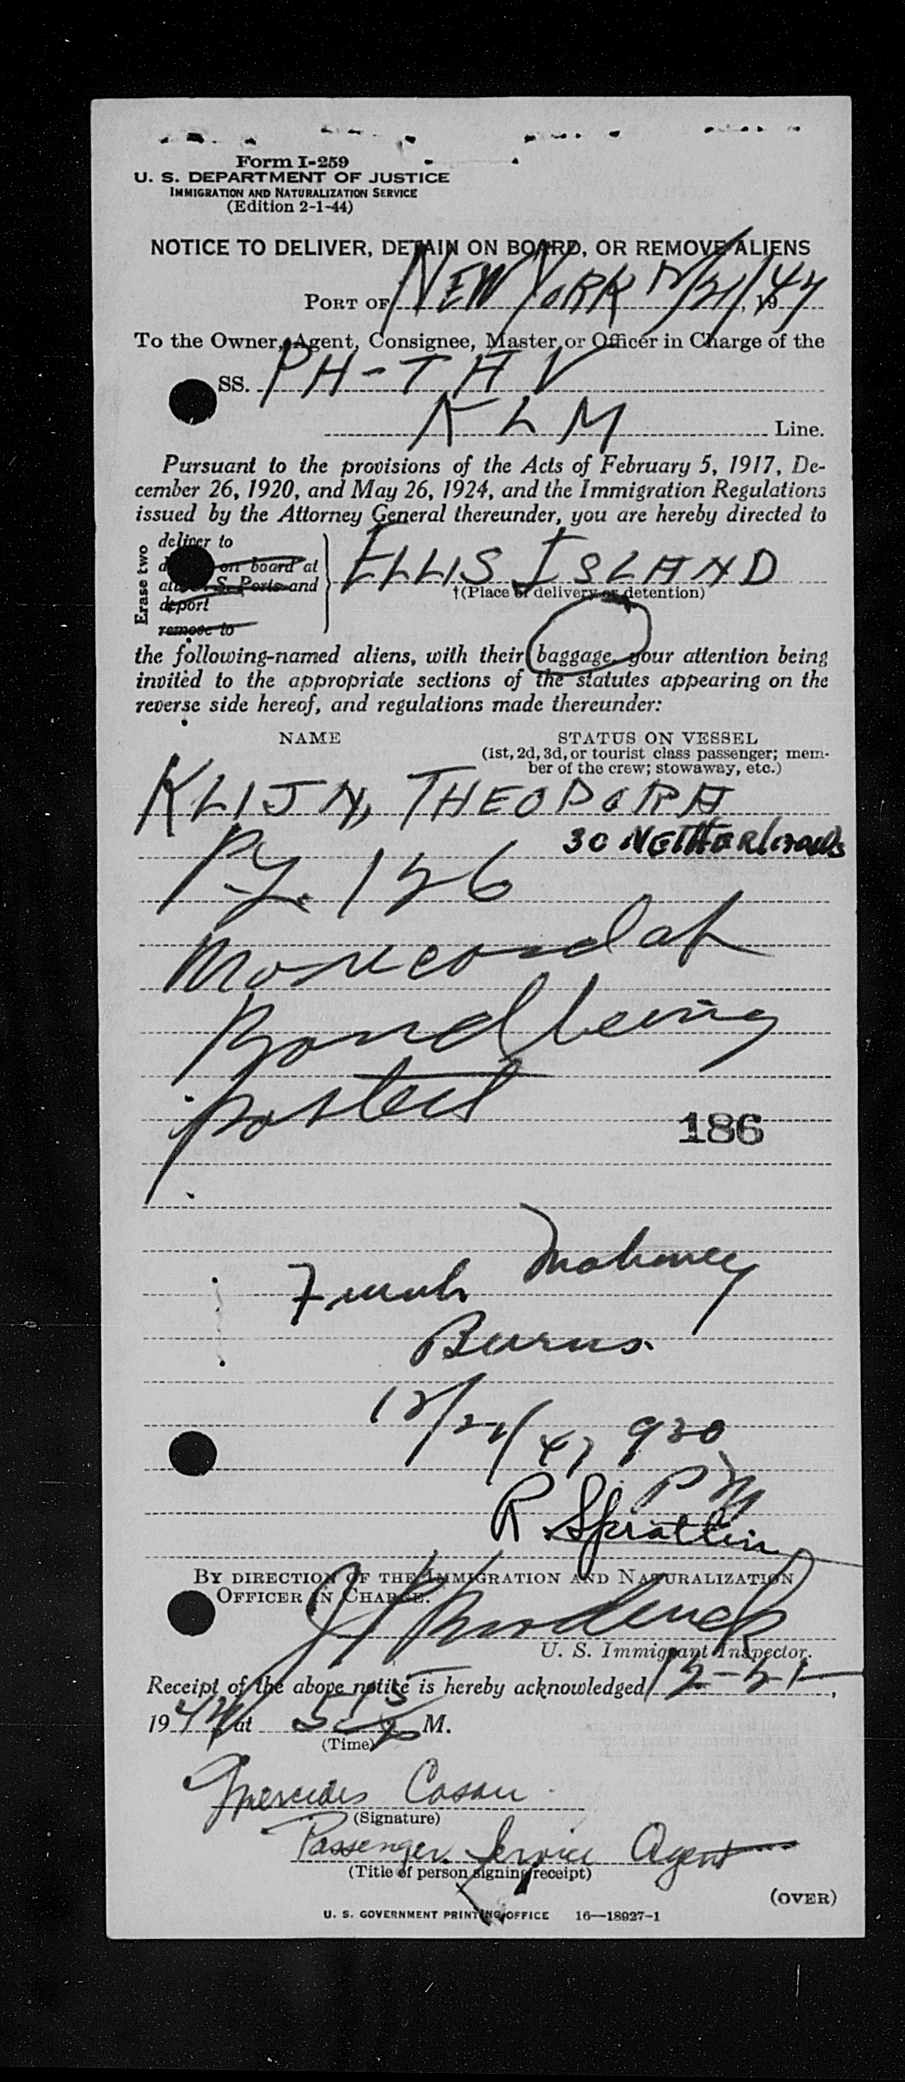 Form I-259
U. S. DEPARTMENT OF JUSTICE
IMMIGRATION AND NATURALIZATION SERVICE
(Edition 2-1-44)
NOTICE TO DELIVER, DETAIN ON BOARD, OR REMOVE ALIENS
PORT OF NEW YORK 12/21/, 1947
To the Owner, Agent, Consignee, Master, or Officer in Charge of the
SS. PH-TAV
KLM Line.
Pursuant to the provisions of the Acts of February 5, 1917, De-
cember 26, 1920, and May 26, 1924, and the Immigration Regulations
issued by the Attorney General thereunder, you are hereby directed to
Erase two
deliver to
on board at
S. Ports and
deport
remove to
ELLIS ISLAND
†(Place of delivery or detention)
the following-named aliens, with their baggage, your attention being
invited to the appropriate sections of the statutes appearing on the
reverse side hereof, and regulations made thereunder:
NAME STATUS ON VESSEL
(1st, 2d, 3d, or tourist class passenger; mem-
ber of the crew; stowaway, etc.)
KLIJN, THEODORA
30 NETHERlands
126
Bond being
posted
186
Mahoney
Burns
12/21/47 930
PM
R. Spratlin
BY DIRECTION OF THE IMMIGRATION AND NATURALIZATION
OFFICER IN CHARGE.
U. S. Immigrant Inspector.
Receipt of the above notice is hereby acknowledged 12-21-,
1947, at 5 M.
(Time)
Mercedes
(Signature)
Passenger Service Agent
(Title of person signing receipt)
(OVER)
U. S. GOVERNMENT PRINTING OFFICE 16—18927-1